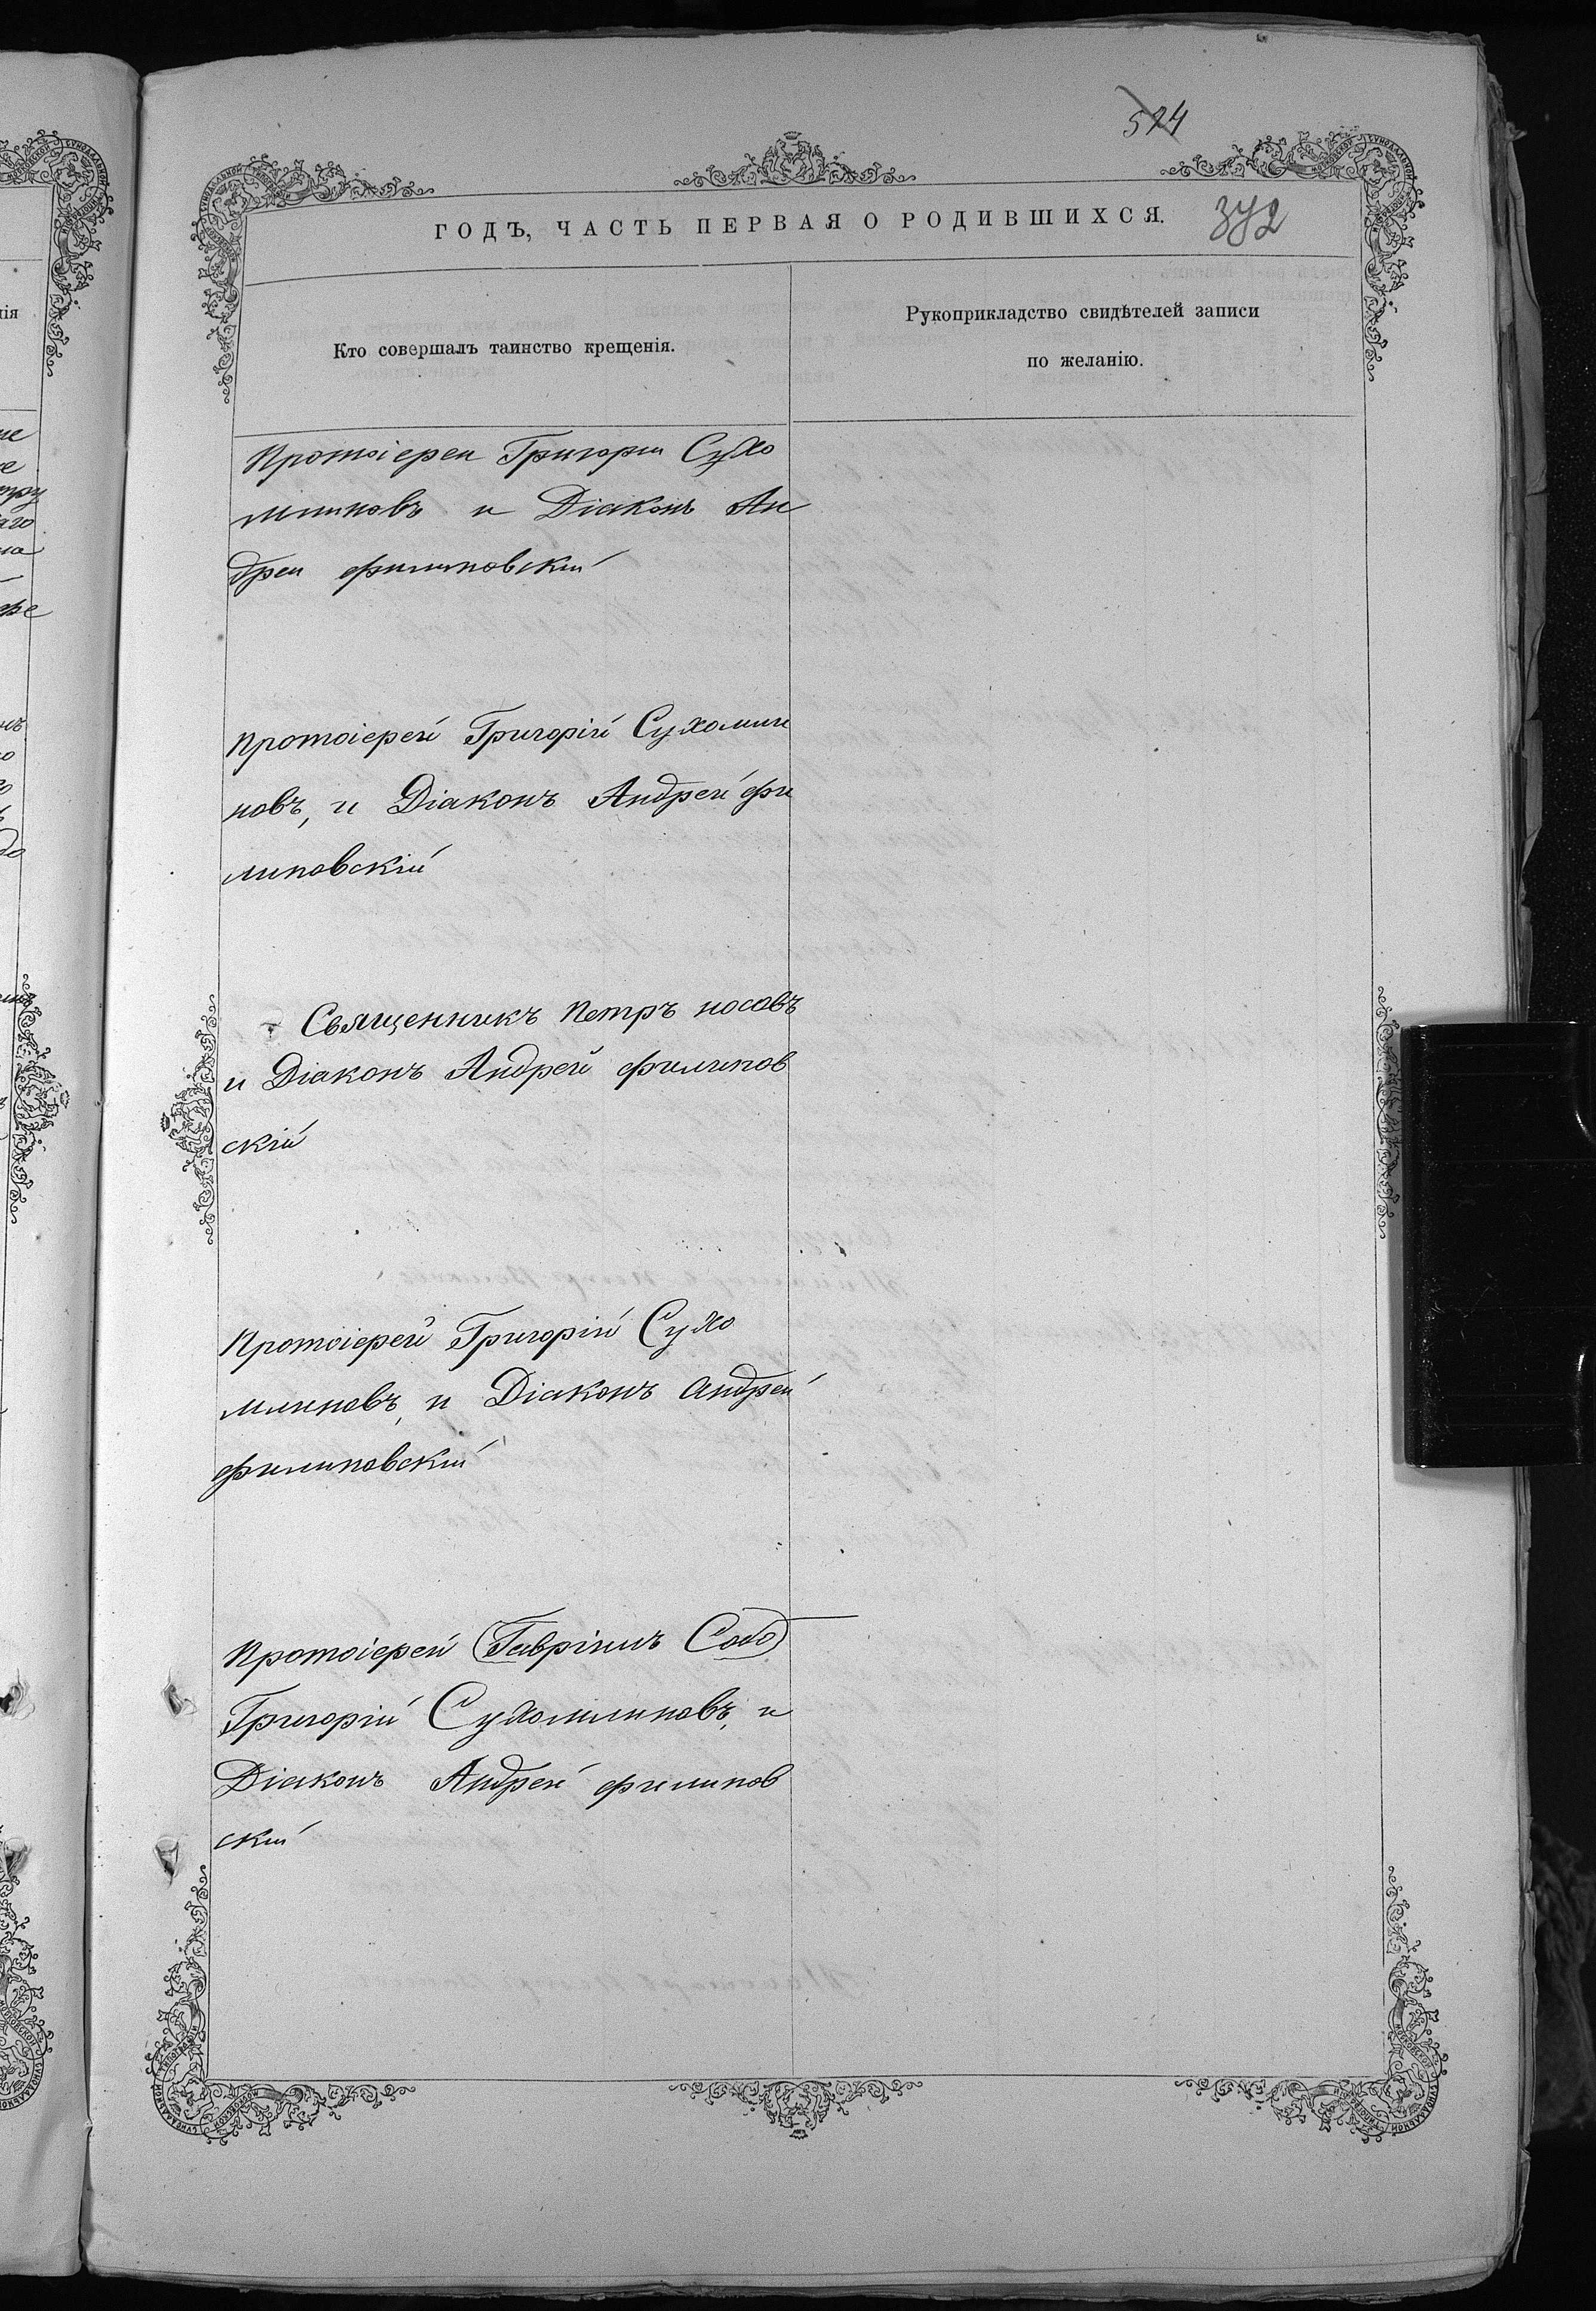 524
ГОДЪ, ЧАСТЬ ПЕРВАЯ О РОДИВШИХСЯ.
372
Кто совершалъ таинство крещенія.
Рукоприкладство свидѣтелей записи
по желанію.
Протоіереи Григории Сухо
млиновъ и Діаконъ Ан
дреи филиповскій
Протоіерей Григорій Сухомли
новъ, и Діаконъ Андрей фи
липовскій
Священникъ Петръ носовъ
и Діаконъ Андрей филипов
скій
Протоіерей Григорій Сухо
млиновъ, и Діаконъ андрей
филиповскій
Протоіерей (Гавріилъ Собо)
Григорій Сухомлиновъ, и
Діаконъ Андрей филипов
скій